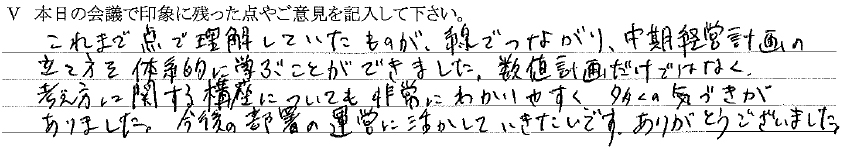 V 本日の会議で印象に残った点やご意見を記入して下さい。
これまで点で理解していたものが、線でつながり、中期経営計画の
立て方を体系的に学ぶことができました。数値計画だけではなく、
考え方に関する構座についても非常にわかりやすく多くの気づきが
ありました。今後の部署の運営に活かしていきたいです。ありがとうございました。